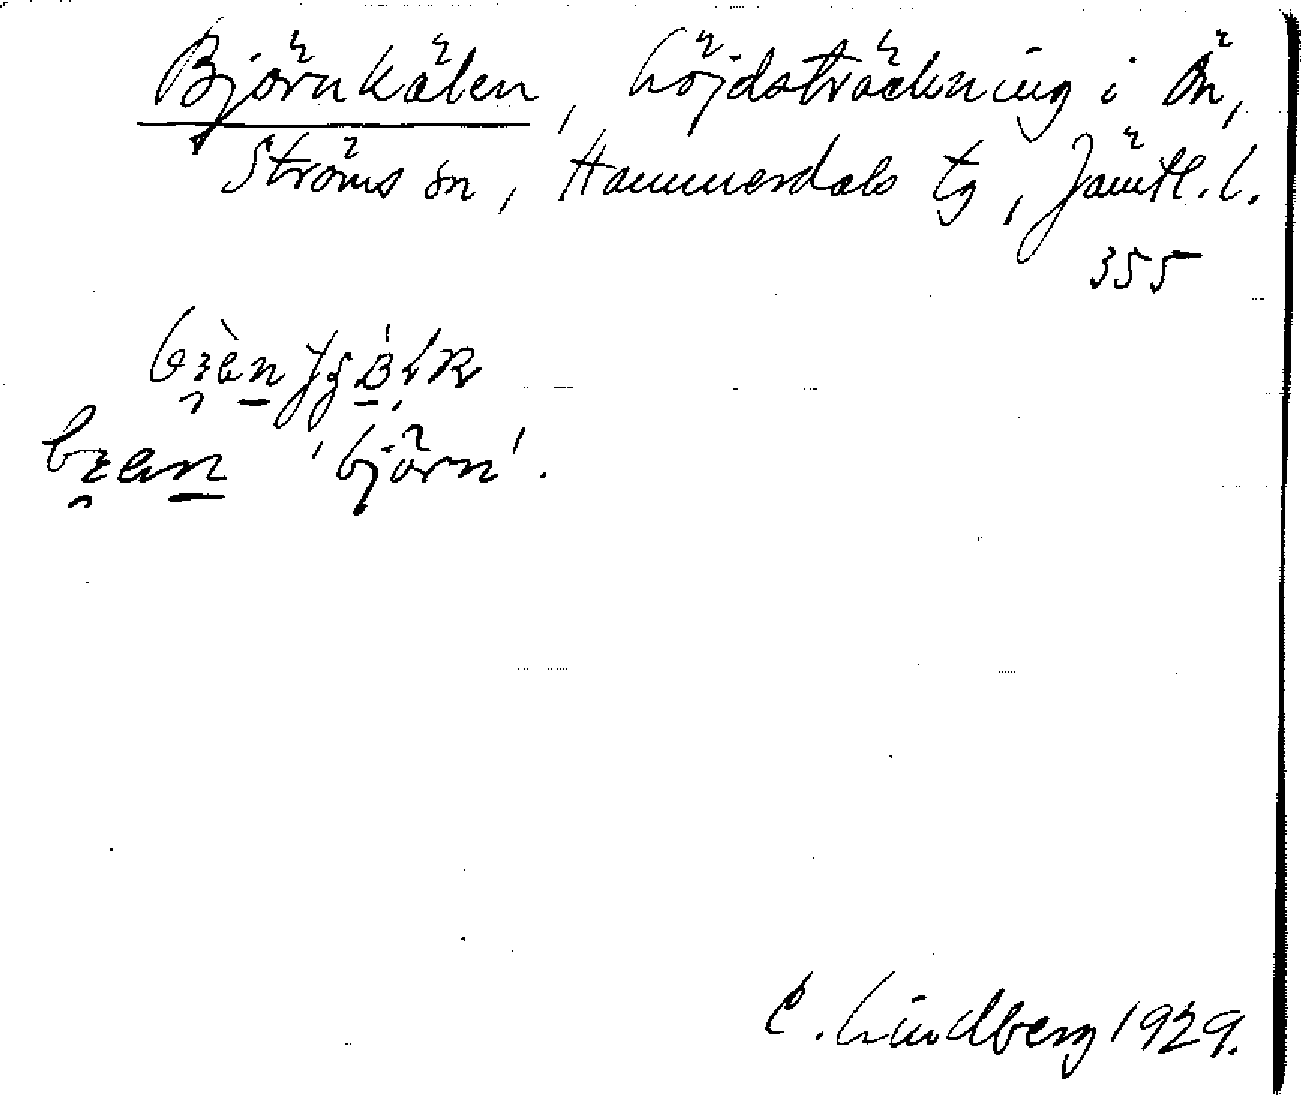 Björnkälen, höjdsträckning i Ön,
Ströms sn, Hammerdals tg, Jämtl. l.
355
'björn'.
C. Lindberg 1929.